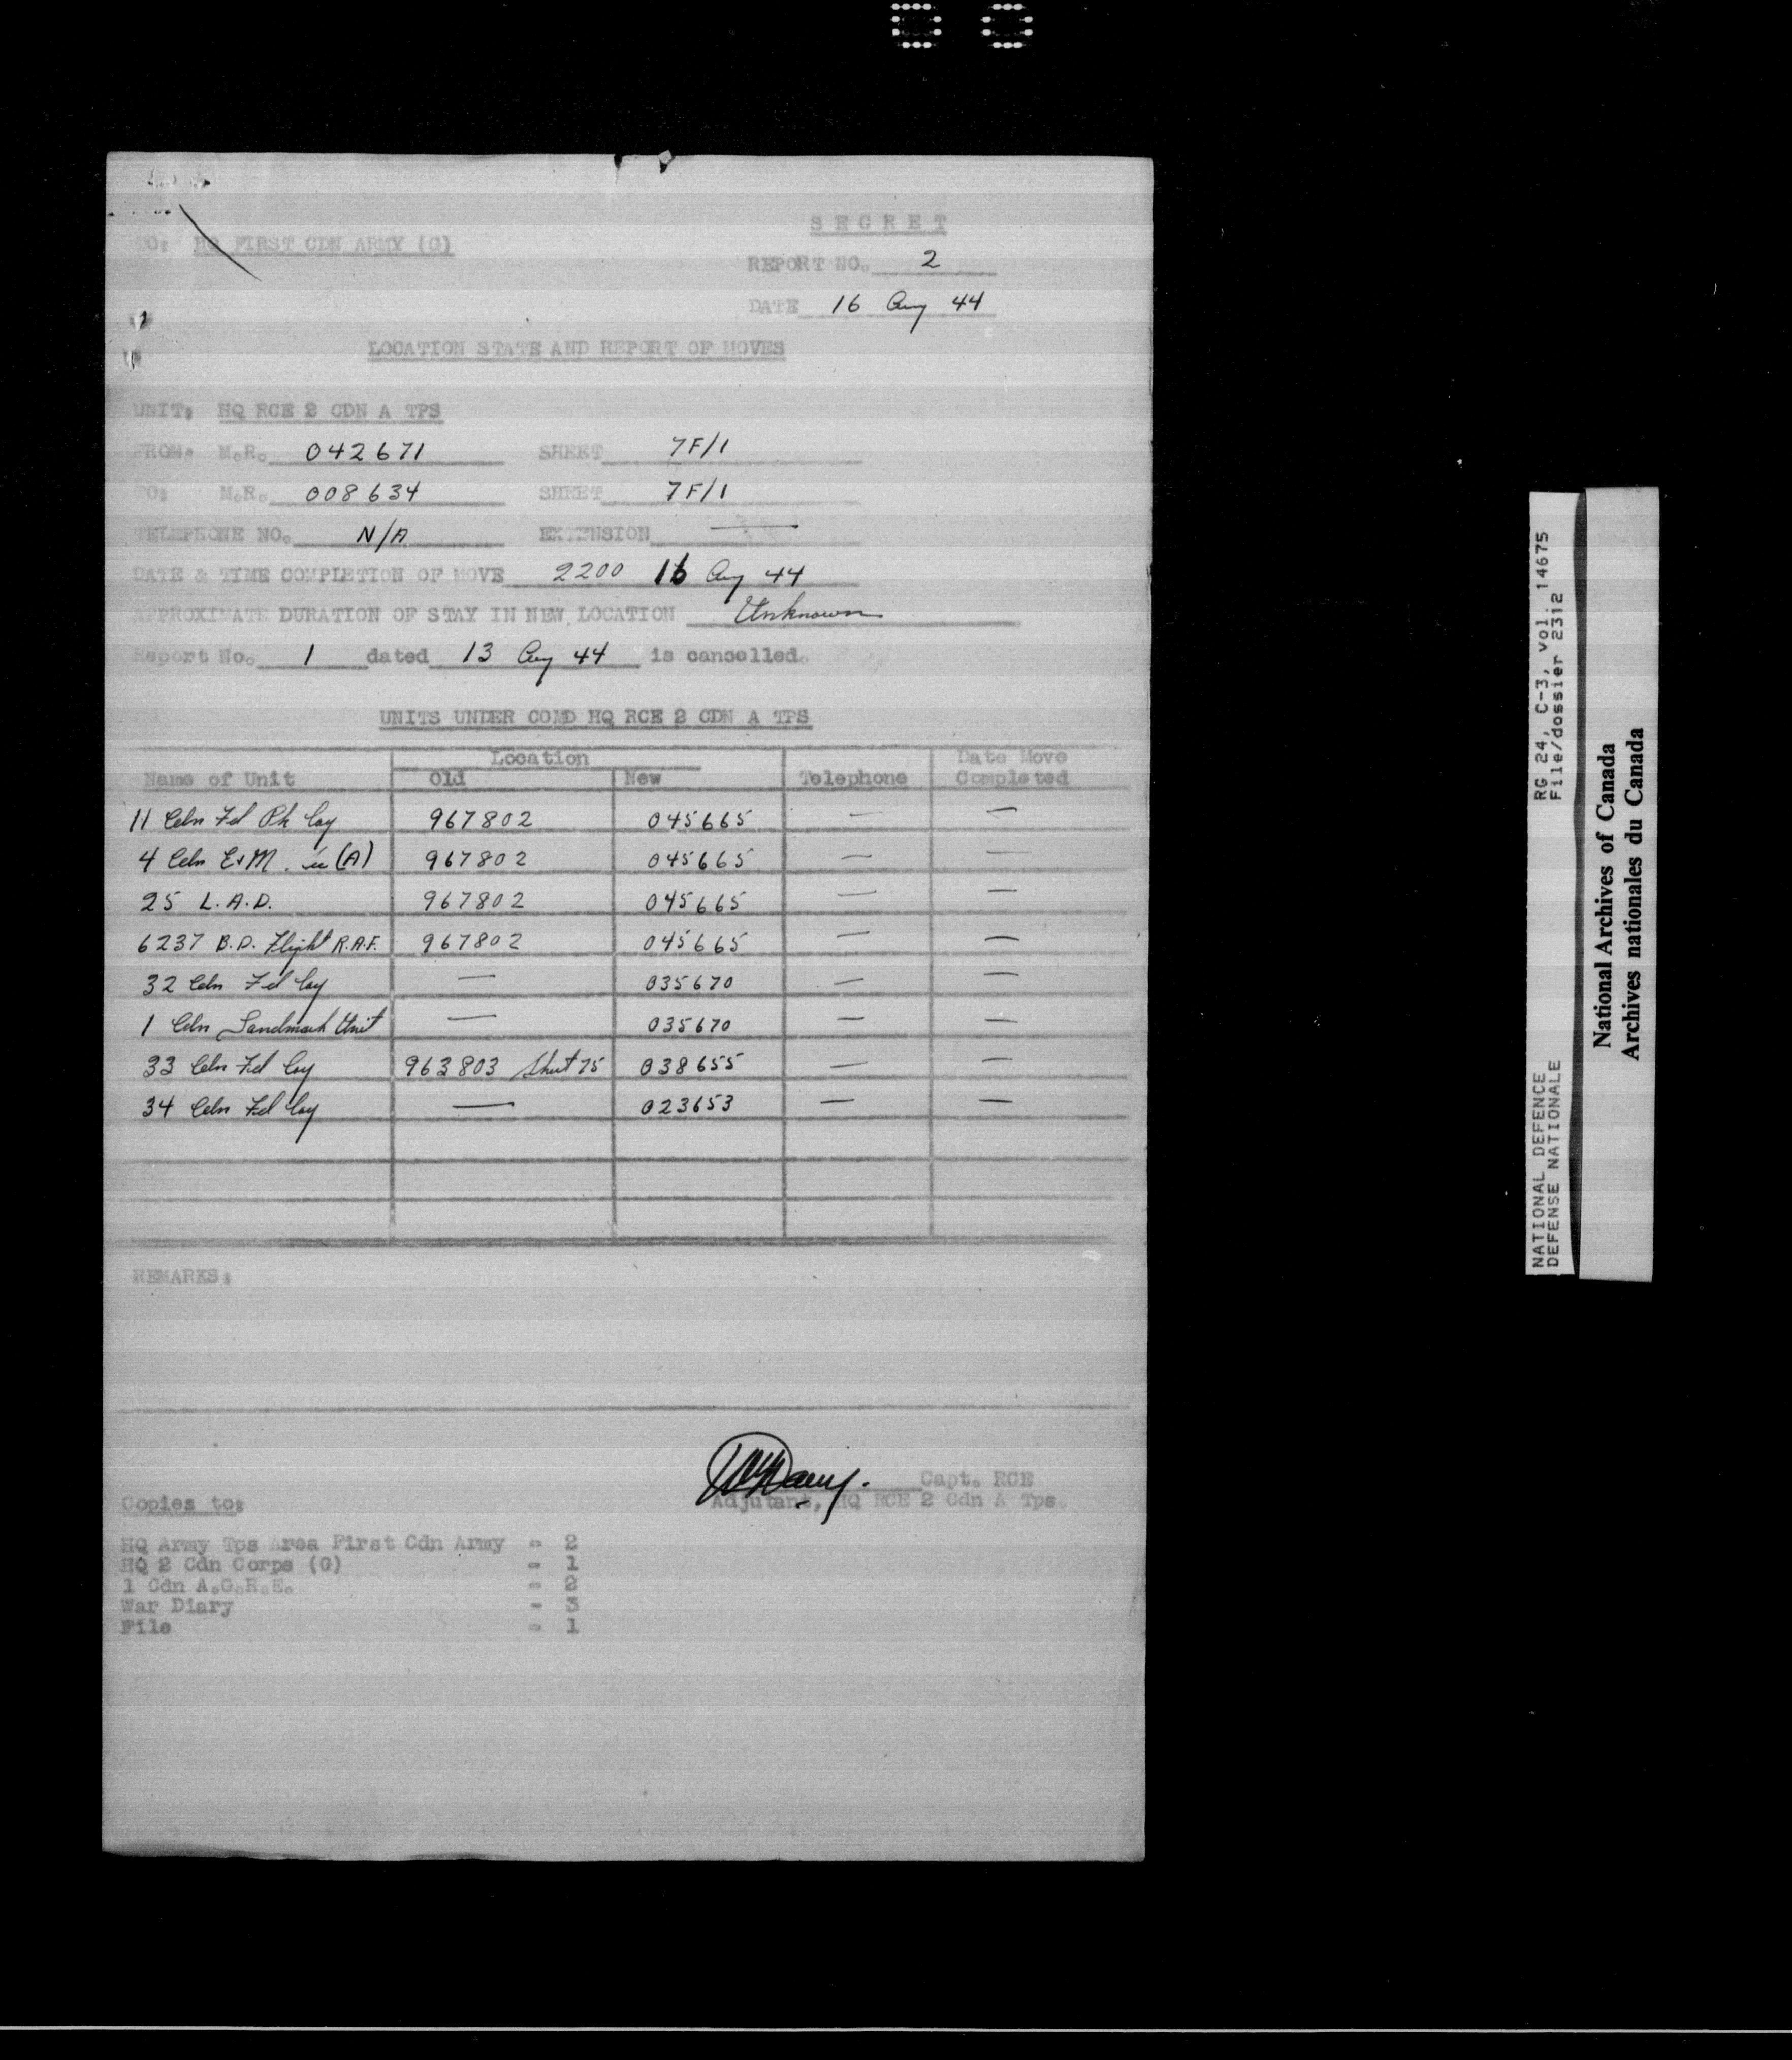 SECRET
TO: HQ FIRST CDN ARMY (G)
REPORT NO. 2
DATE 16 Aug 44
LOCATION STATE AND REPORT OF MOVES
UNIT: HQ RCE 2 CDN A TPS
FROM: M.R. 042671 SHEET 7F/1
TO: M.R. 008634 SHEET 7F/1
TELEPHONE NO. N/A EXTENSION —
DATE & TIME COMPLETION OF MOVE 2200 16 Aug 44
APPROXIMATE DURATION OF STAY IN NEW LOCATION Unknown
Report No. 1 dated 13 Aug 44 is cancelled.
UNITS UNDER COMD HQ RCE 2 CDN A TPS
Location Date Move
Name of Unit Old New Telephone Completed
11 Cdn Fd Pk Coy 967802 045665 — —
4 Cdn E&M (A) 967802 045665 — —
25 L.A.D. 967802 045665 — —
6237 B.D. Flight R.A.F. 967802 045665 — —
32 Cdn Fd Coy — 035670 — —
1 Cdn Landmark Unit — 035670 — —
33 Cdn Fd Coy 963803 Sheet 75 038655 — —
34 Cdn Fd Coy — 023653 — —
REMARKS:
Capt. RCE
Adjutant, HQ RCE 2 Cdn A Tps.
Copies to:
HQ Army Tps Area First Cdn Army - 2
HQ 2 Cdn Corps (G) - 1
1 Cdn A.G.R.E. - 2
War Diary - 3
File - 1
NATIONAL DEFENCE RG 24, C-3, vol. 14675
DEFENSE NATIONALE File/dossier 2312
National Archives of Canada
Archives nationales du Canada